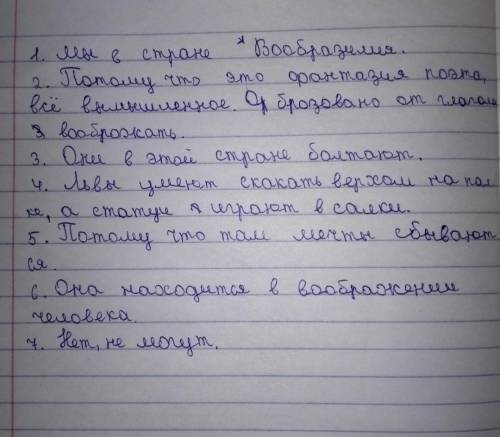 1. Мы в стране "Вообразилия.
2. Потому что это фантазия поэта,
всё вымышленное. Образовано от глагол
вооброжать.
3. Они в этой стране болтают.
4. Львы умеют скакать верхом на пал
ке, а статуи играют в салки.
5. Потому что там мечты сбывают
ся.
6. Она находится в воображении
человека.
7. Нет, не могут.